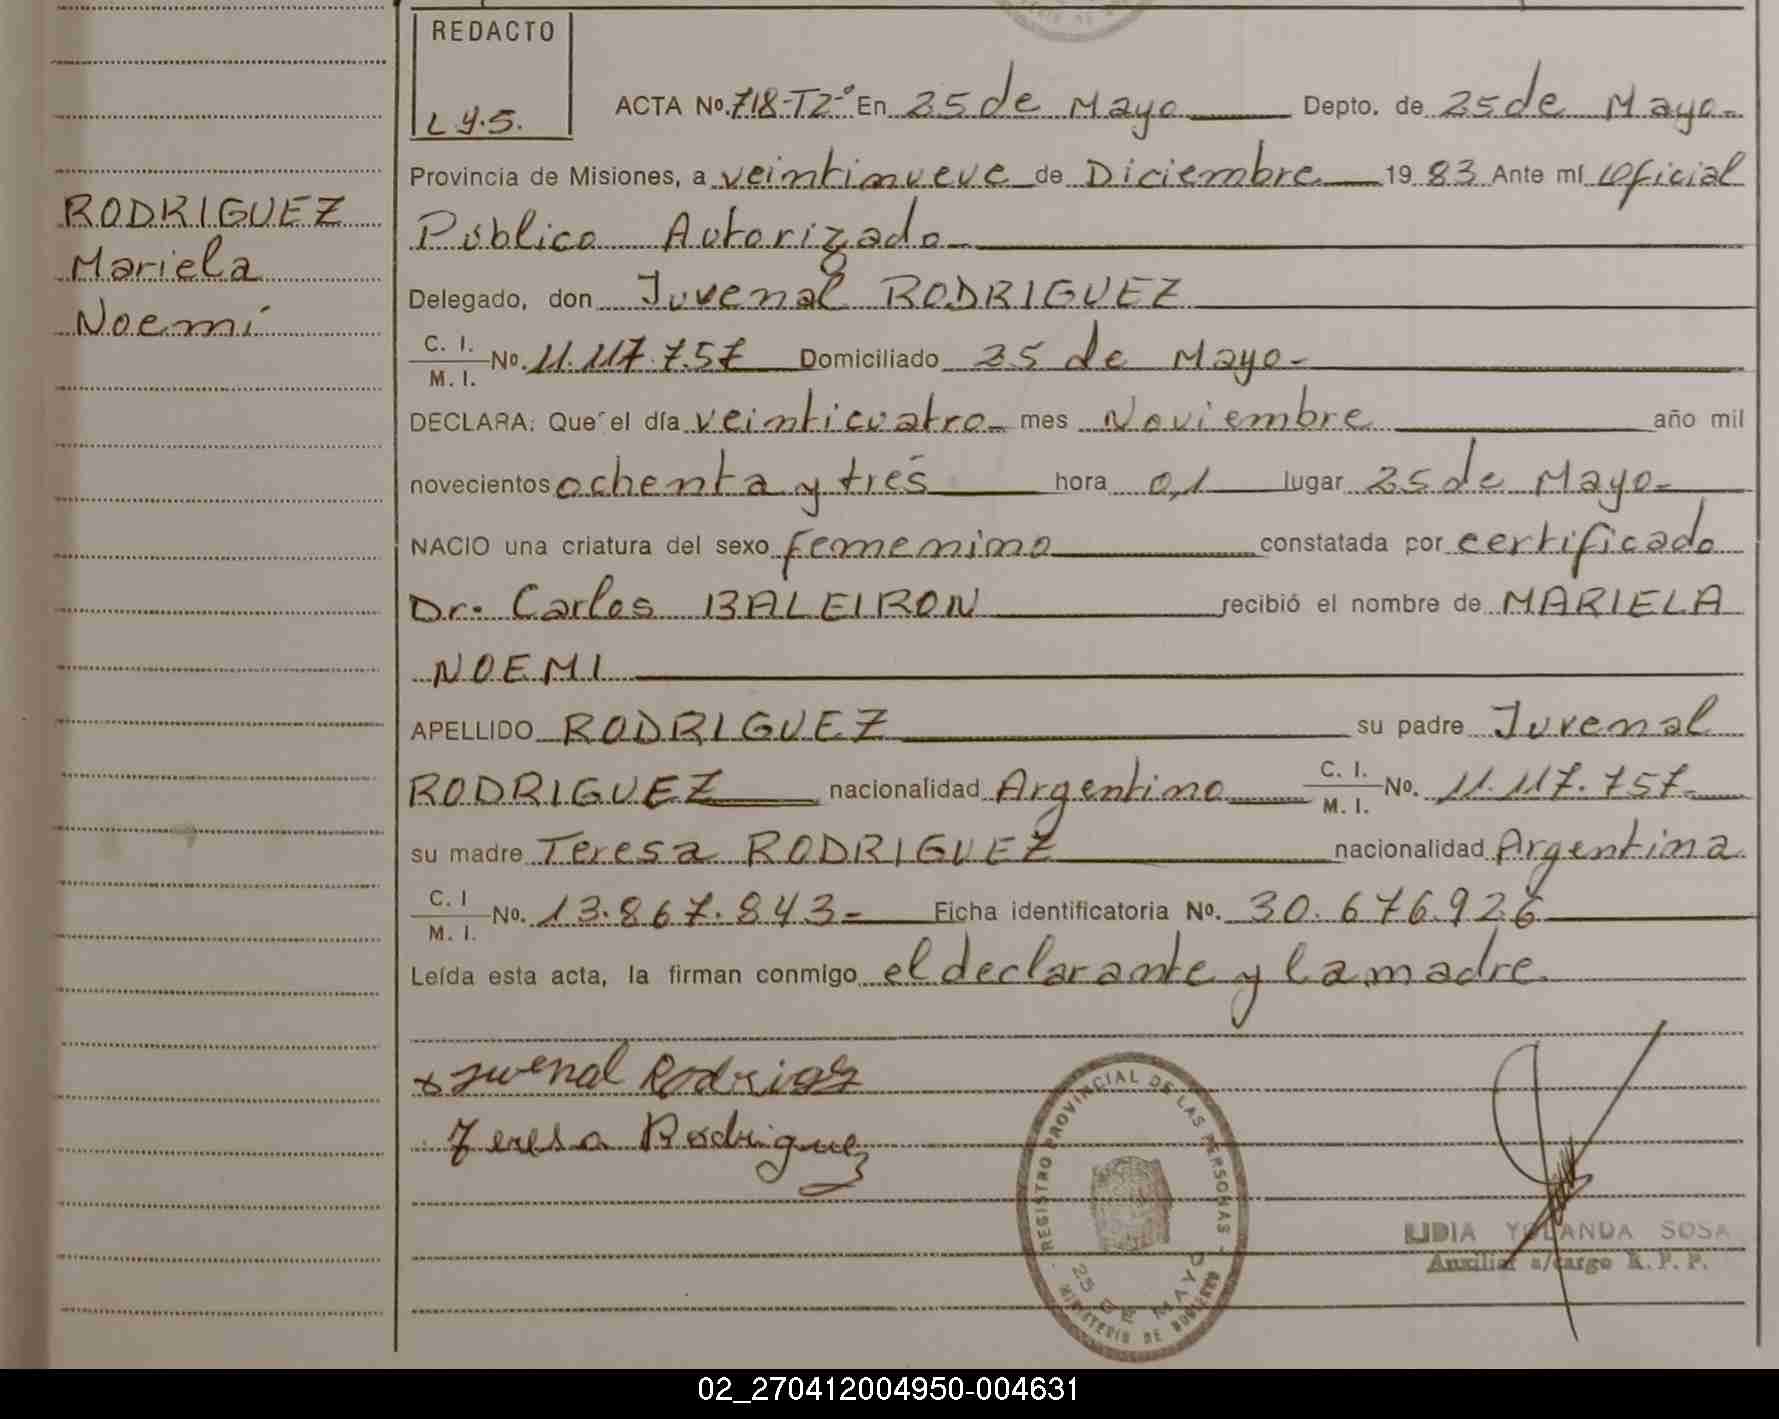 REDACTO
L Y.S.
ACTA No. 718-T2º En 25 de Mayo Depto. de 25 de Mayo-
Provincia de Misiones, a veintinueve de Diciembre 19 83 Ante mí Oficial
Público Autorizado
Delegado, don Juvenal RODRIGUEZ
C. I.
M. I. No. 11.117.757 Domiciliado 25 de Mayo-
DECLARA: Que el día veinticuatro mes Noviembre año mil
novecientos ochenta y tres hora 0,1 lugar 25 de Mayo-
NACIO una criatura del sexo femenino constatada por certificado
Dr. Carlos BALEIRON recibió el nombre de MARIELA
NOEMI
APELLIDO RODRIGUEZ su padre Juvenal
RODRIGUEZ nacionalidad Argentino C. I.
M. I. No. 11.117.757-
su madre Teresa RODRIGUEZ nacionalidad Argentina
C. I
M. I. No. 13.867.843- Ficha identificatoria No. 30.676.926
Leída esta acta, la firman conmigo el declarante y la madre
RODRIGUEZ
Mariela
Noemí
Juvenal Rodrigez
Teresa Rodriguez
REGISTRO PROVINCIAL DE LAS PERSONAS
25 DE MAYO
MINISTERIO DE GOBIERNO
LIDIA YOLANDA SOSA
Auxiliar a/cargo R. P. P.
02_270412004950-004631